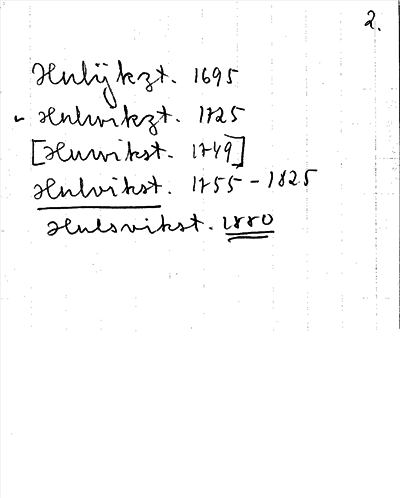 2.
Hulijkzt. 1695
Hulvikzt. 1725
[Huvikst. 1749]
Hulvikst. 1755 - 1825
Hulsvikst. 1880